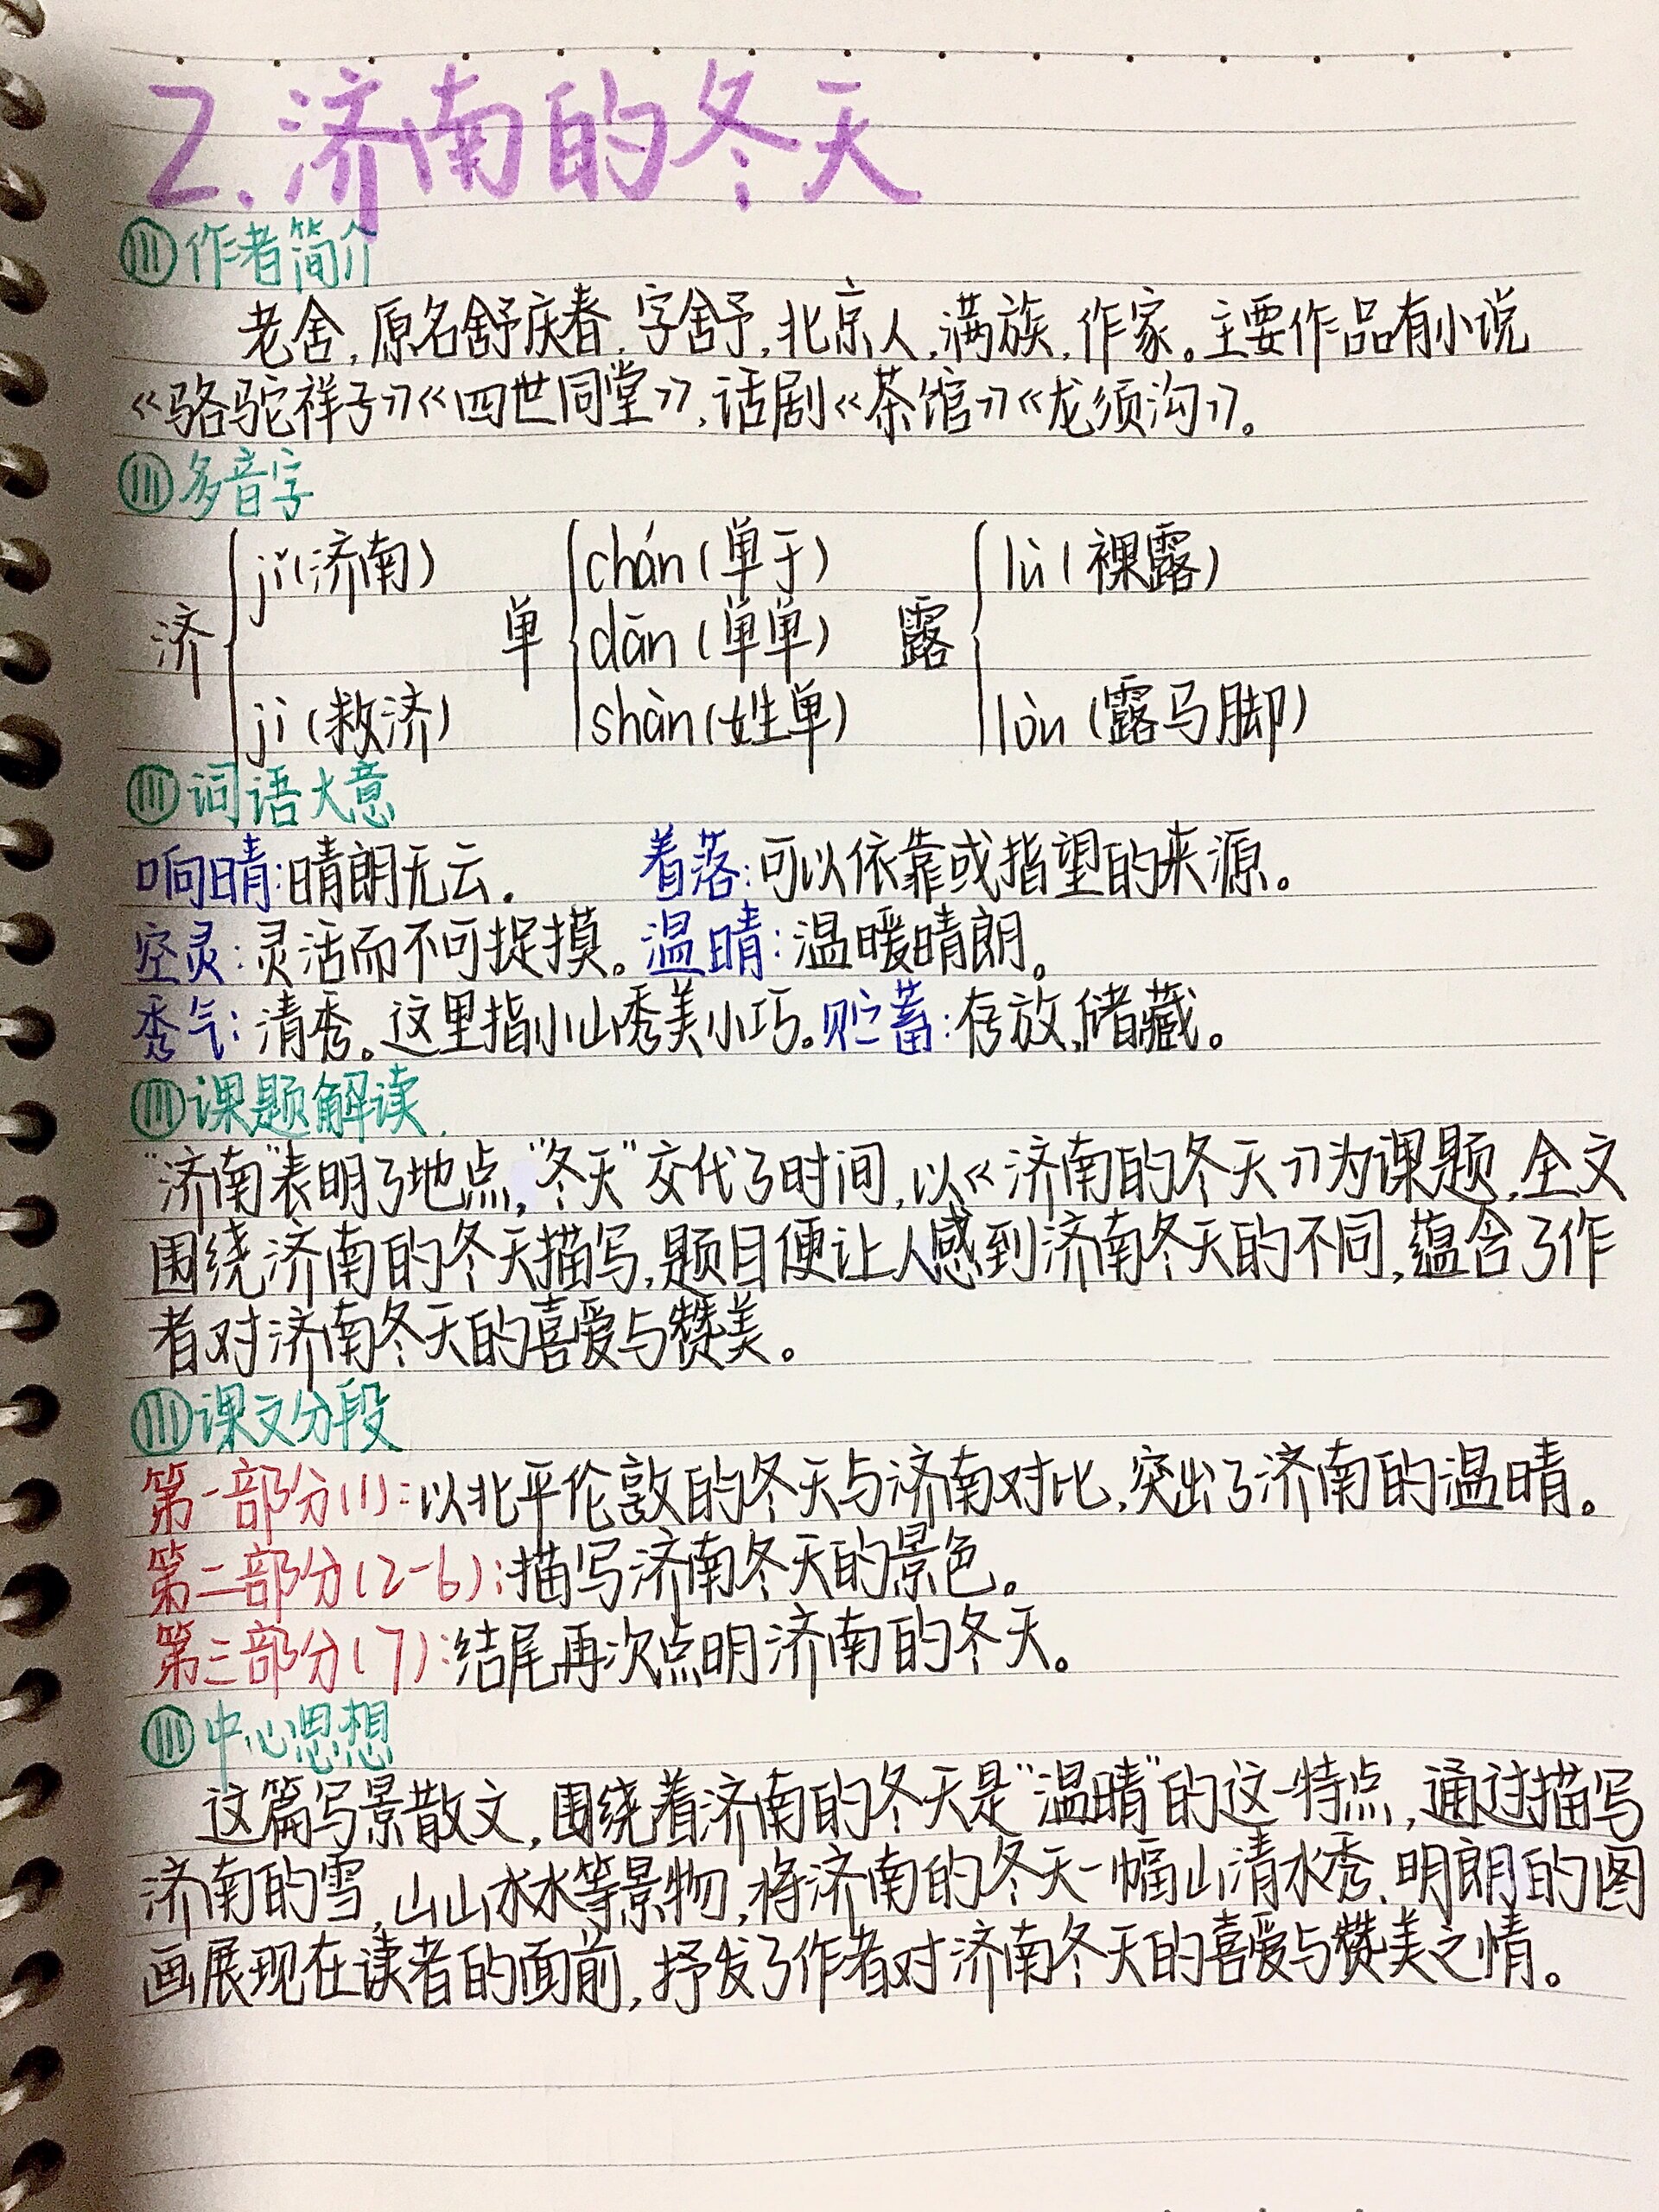 2.济南的冬天
作者简介
老舍,原名舒庆春,字舍予,北京人,满族,作家。主要作品有小说
《骆驼祥子》《四世同堂》,话剧《茶馆》《龙须沟》。
多音字
济 jǐ(济南) jì(救济) 单 chán(单于) dān(单单) shàn(姓单) 露 lù(裸露) lòu(露马脚)
词语大意
响晴:晴朗无云. 着落:可以依靠或指望的来源。
空灵:灵活而不可捉摸。温晴:温暖晴朗。
秀气:清秀。这里指小山秀美小巧。贮蓄:存放,储藏。
课题解读.
"济南"表明了地点,"冬天"交代了时间,以《济南的冬天》为课题,全文
围绕济南的冬天描写,题目便让人感到济南冬天的不同,蕴含了作
者对济南冬天的喜爱与赞美。
课文分段
第一部分(1):以北平伦敦的冬天与济南对比,突出了济南的温晴。
第二部分(2-6):描写济南冬天的景色。
第三部分(7):结尾再次点明济南的冬天。
中心思想
这篇写景散文,围绕着济南的冬天是"温晴"的这一特点,通过描写
济南的雪,山山水水等景物,将济南的冬天一幅山清水秀、明朗的图
画展现在读者的面前,抒发了作者对济南冬天的喜爱与赞美之情。